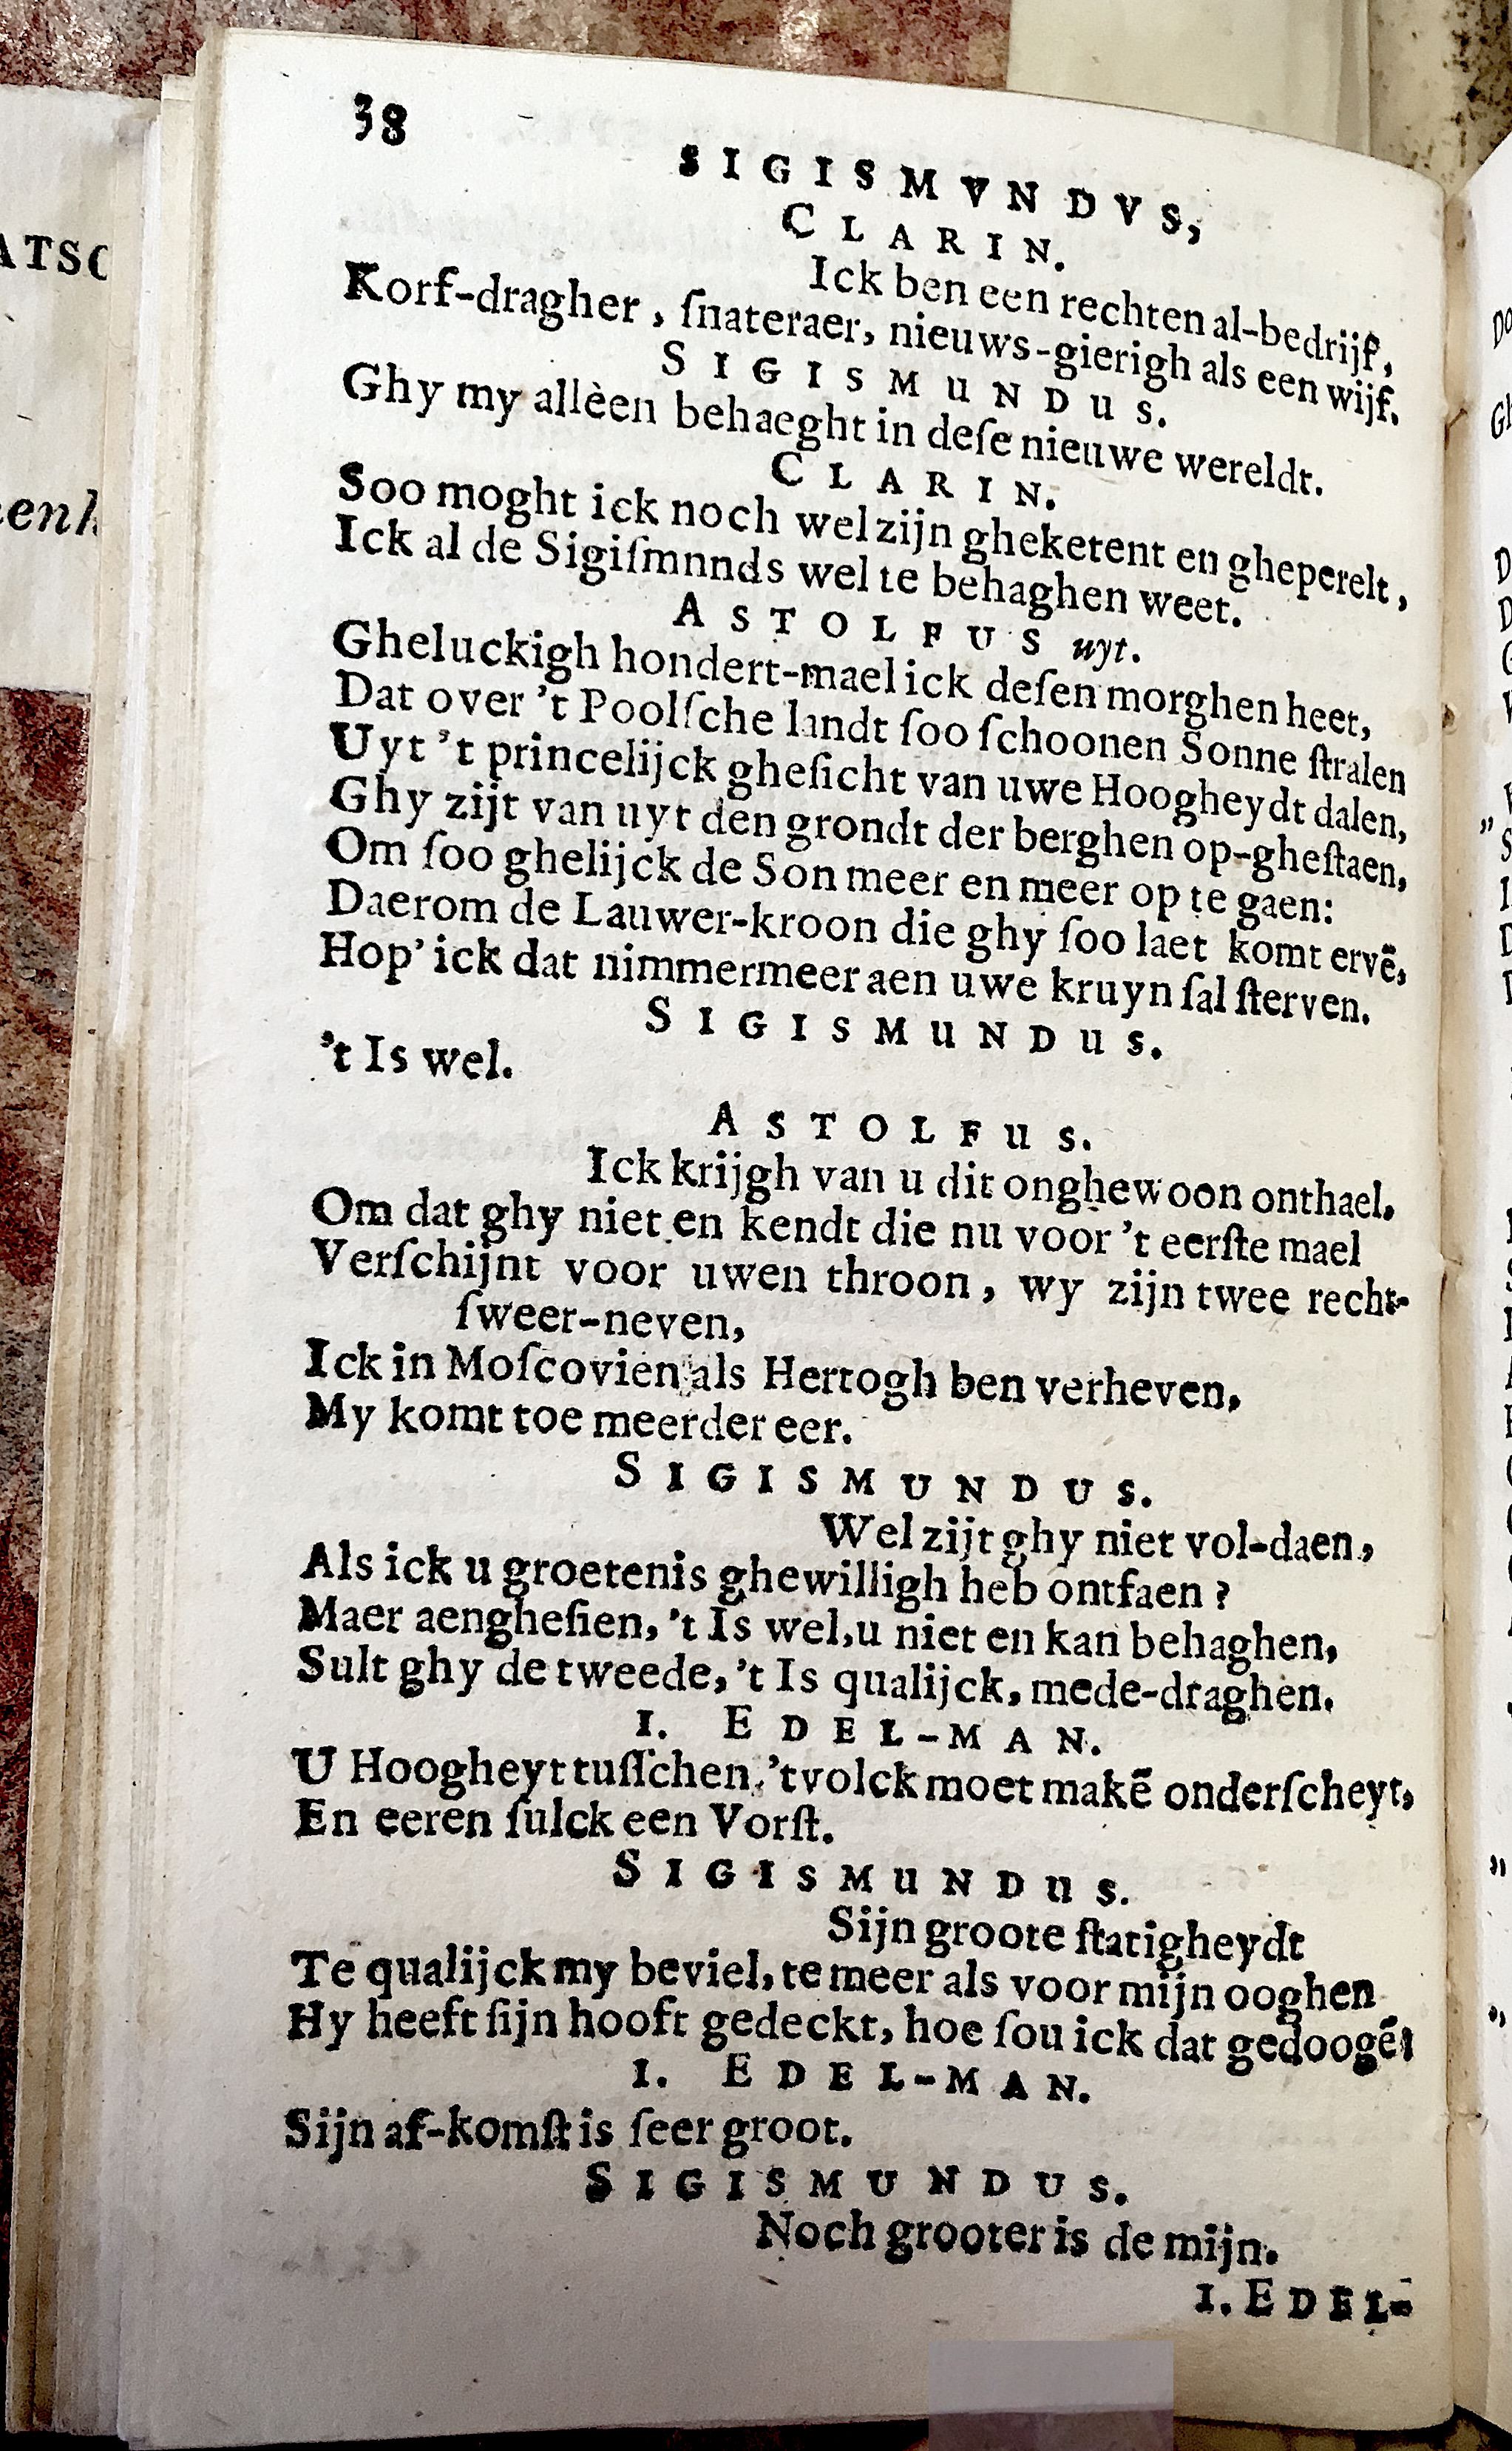 38
SIGISMVNDVS,
CLARIN.
Ick ben een rechten al-bedrijf,
Korf-dragher, ſnateraer, nieuws-gierigh als een wijf.
SIGISMUNDUS.
Ghy my allèen behaeght in deſe nieuwe wereldt.
CLARIN.
Soo moght ick noch wel zijn gheketent en gheperelt,
Ick al de Sigiſmnnds wel te behaghen weet.
ASTOLFUS uyt.
Gheluckigh hondert-mael ick deſen morghen heet,
Dat over 't Poolſche landt ſoo ſchoonen Sonne ſtralen
Uyt 't princelijck gheſicht van uwe Hoogheydt dalen,
Ghy zijt van uyt den grondt der berghen op-gheſtaen,
Om ſoo ghelijck de Son meer en meer op te gaen:
Daerom de Lauwer-kroon die ghy ſoo laet komt ervē,
Hop' ick dat nimmermeer aen uwe kruyn ſal ſterven.
SIGISMUNDUS.
't Is wel.
ASTOLFUS.
Ick krijgh van u dit onghewoon onthael,
Om dat ghy niet en kendt die nu voor 't eerſte mael
Verſchijnt voor uwen throon, wy zijn twee recht-
ſweer-neven,
Ick in Moſcovien als Hertogh ben verheven,
My komt toe meerder eer.
SIGISMUNDUS.
Wel zijt ghy niet vol-daen,
Als ick u groetenis ghewilligh heb ontfaen?
Maer aengheſien, 't Is wel, u niet en kan behaghen,
Sult ghy de tweede, 't Is qualijck, mede-draghen.
1. EDEL-MAN.
U Hoogheyt tuſſchen 't volck moet makē onderſcheyt,
En eeren ſulck een Vorſt.
SIGISMUNDUS.
Sijn groote ſtatigheydt
Te qualijck my beviel, te meer als voor mijn ooghen
Hy heeft ſijn hooft gedeckt, hoe ſou ick dat gedoogē?
1. EDEL-MAN.
Sijn af-komſt is ſeer groot.
SIGISMUNDUS.
Noch grooter is de mijn.
1. EDEL-